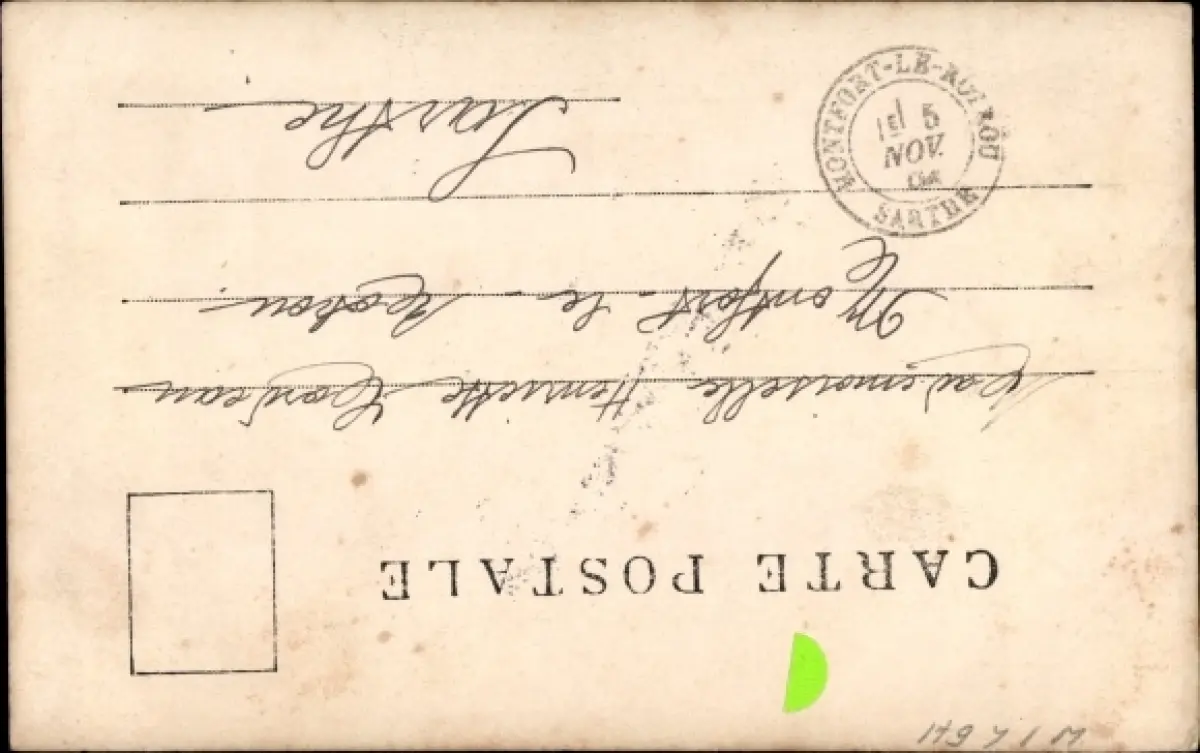 CARTE POSTALE
Mademoiselle Henriette
Montfort-le-Rotrou.
Sarthe
MONTFORT-LE-ROTROU
5
NOV.
SARTHE